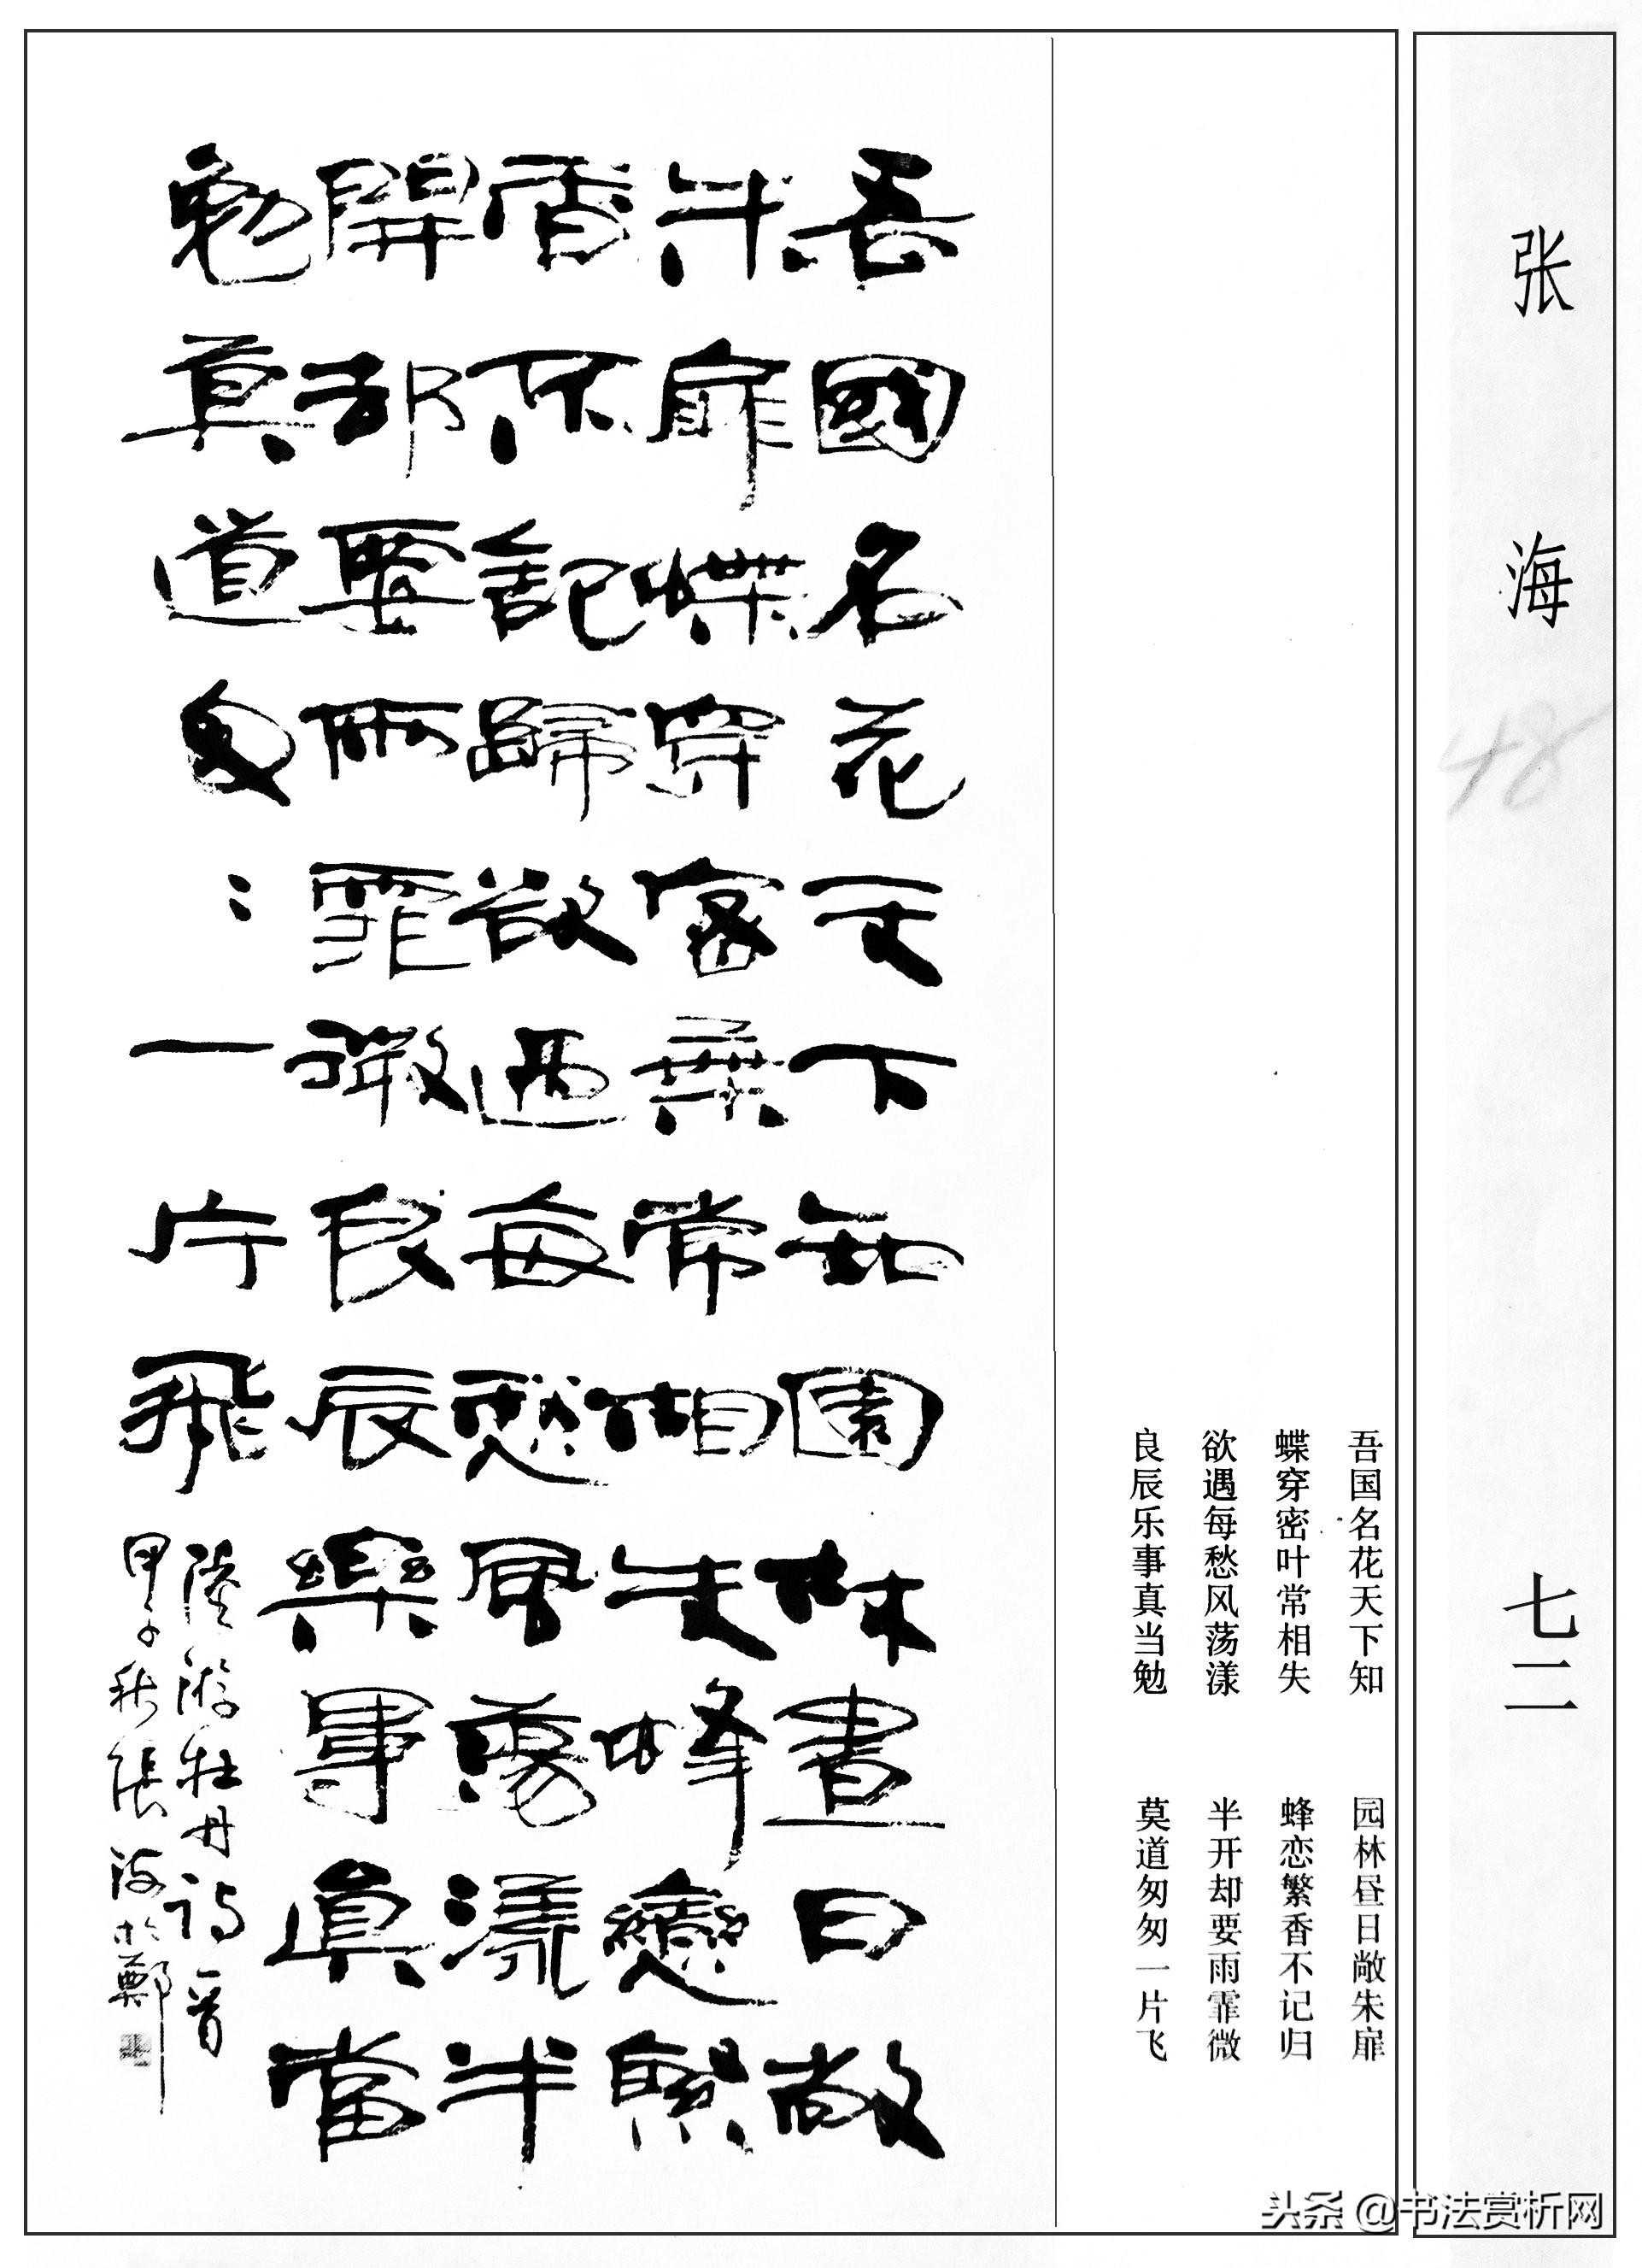 张海
48
七二
吾国名花天下知 园林昼日敞朱扉
蝶穿密叶常相失 蜂恋繁香不记归
欲遇每愁风荡漾 半开却要雨霏微
良辰乐事真当勉 莫道匆匆一片飞
吾國名花天下知園林晝日敞
朱扉蝶穿密葉常相失蜂戀繁
香不記歸欲過每愁風蕩漾半
開却要雨霏微良辰樂事真當
勉莫道匆〻一片飛
陸游牡丹詩一首
甲子秋張海於鄭
头条 @书法赏析网